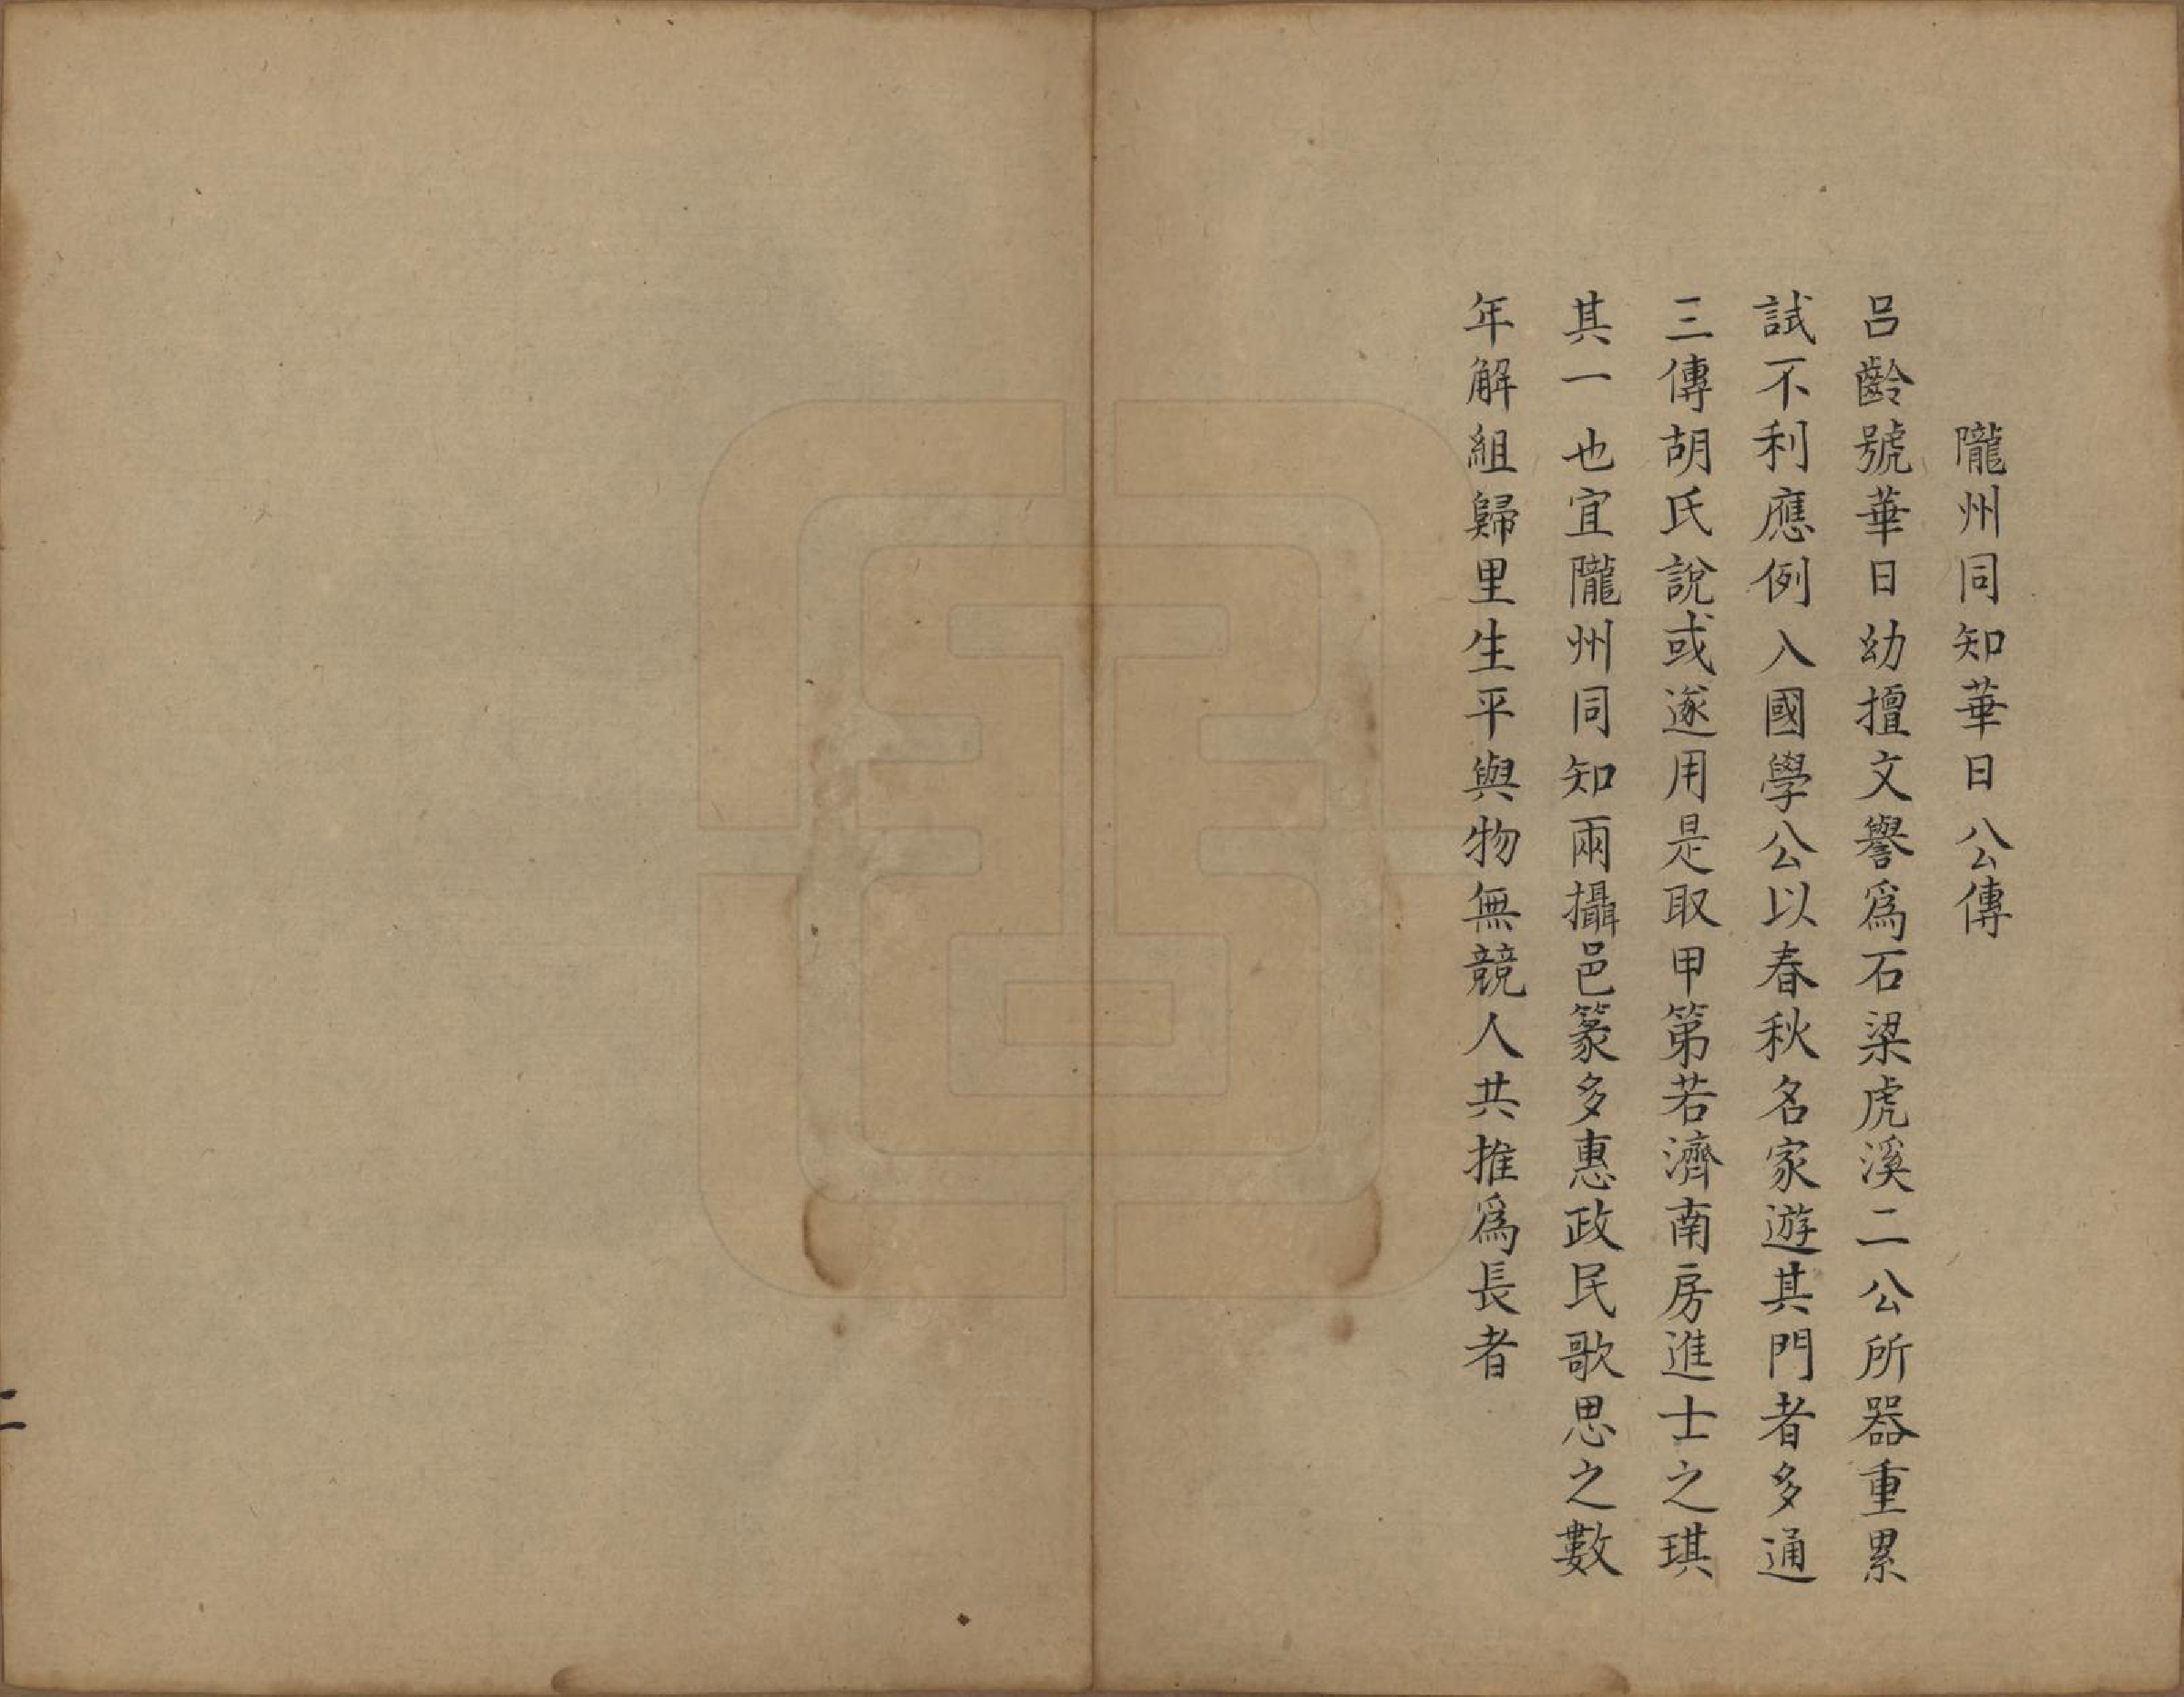 隴州同知華日公傳
呂齡號華日幼擅文譽爲石梁虎溪二公所器重累
試不利應例入國學公以春秋名家遊其門者多通
三傳胡氏說或遂用是取甲第若濟南房進士之琪
其一也宜隴州同知兩攝邑篆多惠政民歌思之數
年解組歸里生平與物無競人共推爲長者